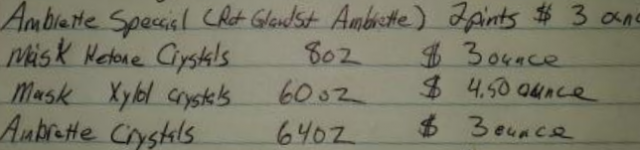 Ambrette Special (Rct Glandst Ambrette) 2pints $ 3 ounc
Musk Ketone Crystals 8oz $ 3 ounce
Musk Xylol crystals 60oz $ 4.50 ounce
Ambrette Crystals 64oz $ 3 ounce